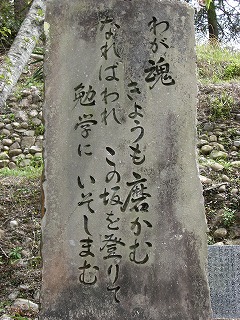 わが魂
きようも磨かむ
なればわれ この坂を登りて
勉学に いそしまむ